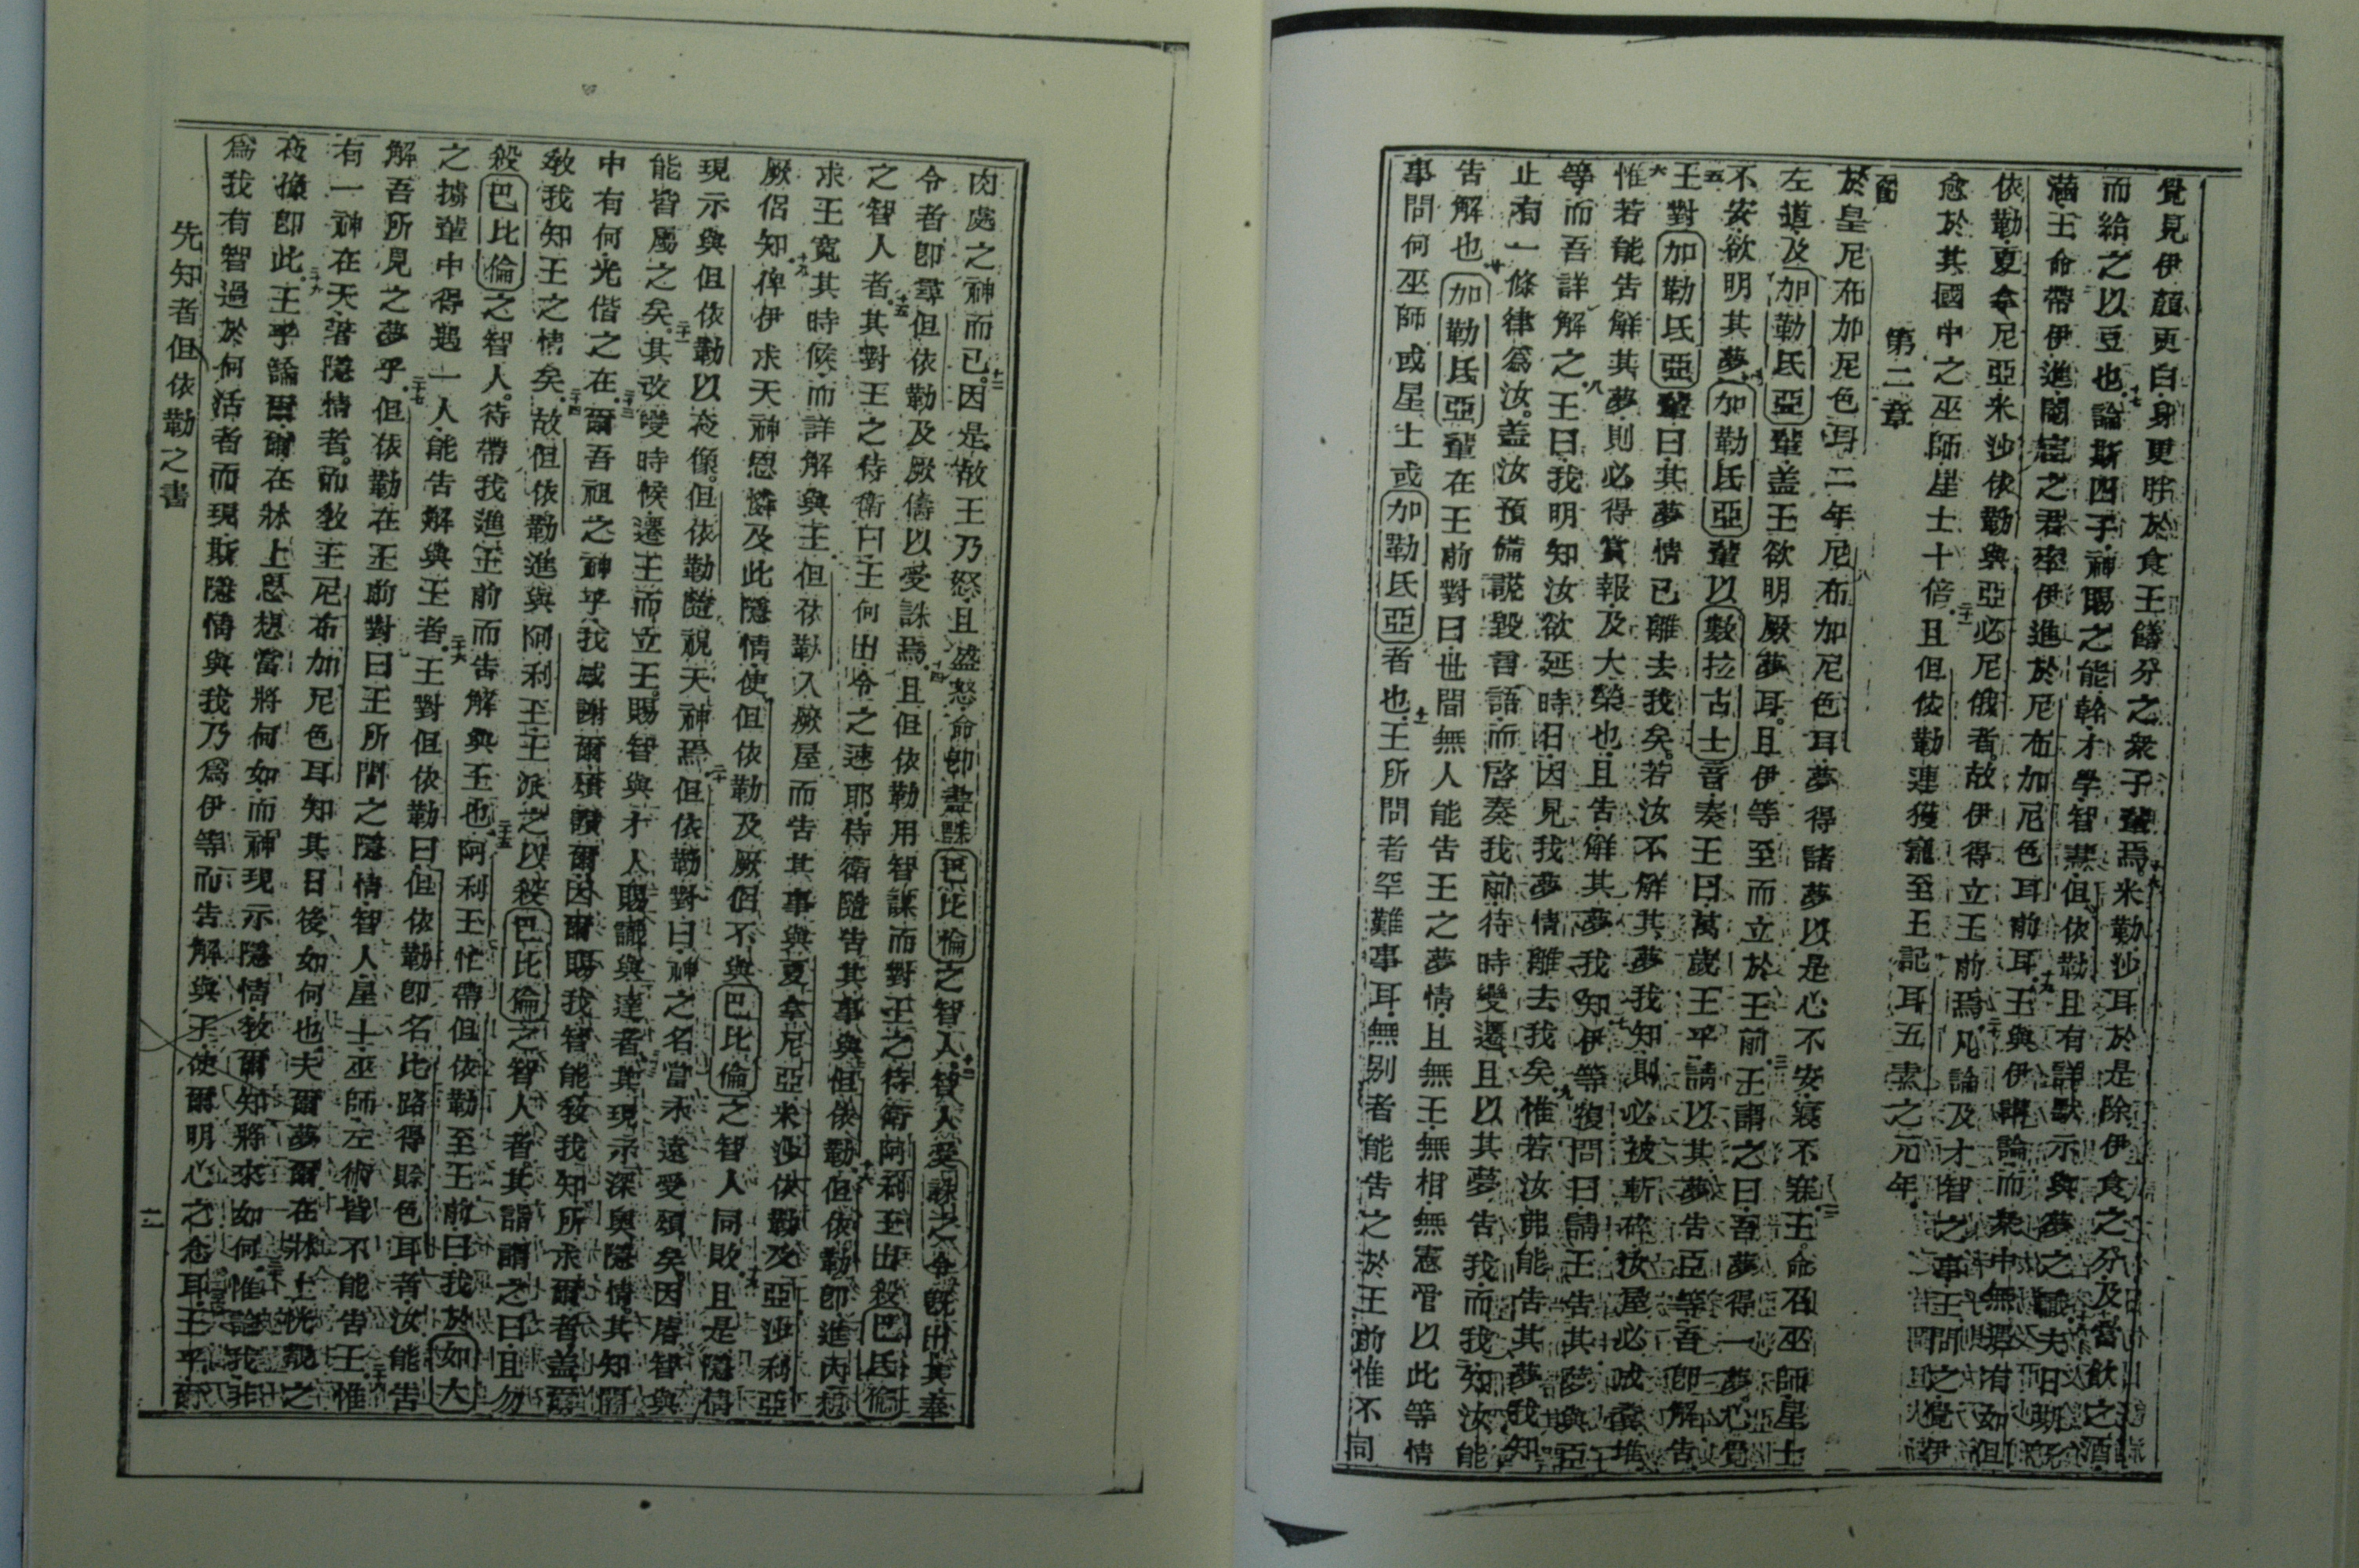 覺見伊顏更白身更胖於食王饍分之衆子輩焉十六米勒沙耳於是除伊食之分及當飲之酒
而給之以豆也十七論斯四子神賜之能幹才學智慧但依勒且有詳默示與夢之識十八夫日期既
滿王命帶伊進閹宦之君率伊進於尼布加尼色耳前耳十九王與伊辯論而衆中無遇有如但
依勒夏拿尼亞米沙依勒與亞必尼俄者故伊得立王前焉二十凡論及才智之事王問之覺伊
愈於其國中之巫師星士十倍二十一且但依勒連獲寵至王記耳五素之元年
第二章
節一
於皇尼布加尼色耳二年尼布加尼色耳夢得諸夢以是心不安寢不寐二王命召巫師星士
左道及加勒氐亞輩盖王欲明厥夢耳且伊等至而立於王前三王謂之曰吾夢得一夢心覺
不安欲明其夢四加勒氐亞輩以數拉古士音奏王曰萬歲王乎請以其夢告臣等吾卽解告
五王對加勒氐亞輩曰其夢情已離去我矣若汝不解其夢我知則必被斬碎汝屋必成糞堆
六惟若能告解其夢則必得賞報及大榮也且告解其夢我知七伊等復問曰請王告其夢與臣
等而吾詳解之八王曰我明知汝欲延時日因見我夢情離去我矣九惟若汝弗能告其夢我知
止有一條律爲汝盖汝預備說毀言語而啓奏我前待時變遷且以其夢告我而我知汝能
告解也十加勒氐亞輩在王前對曰世間無人能告王之夢情且無王無相無憲官以此等情
事問何巫師或星士或加勒氐亞者也十一王所問者罕難事耳無别者能告之於王前惟不同
肉處之神而已十二因是故王乃怒且盛怒命卽盡誅巴比倫之智人十三智人受誅之令旣出其奉
令者卽尋但依勒及厥儔以受誅焉十四且但依勒用智謀而對王之侍衛阿利王出殺巴氐倫
之智人者十五其對王之侍衛曰王何出令之速耶侍衛隨告其事與但依勒十六但依勒卽進內懇
求王寬其時候而詳解與王十七但依勒入厥屋而告其事與夏拿尼亞米沙依勒及亞沙利亞
厥侶知十八俾伊求天神恩憐及此隱情使但依勒及厥侶不與巴比倫之智人同敗十九且是隱情
現示與但依勒以夜像但依勒隨祝天神焉二十但依勒對曰神之名當永遠受頌矣因爲智與
能皆屬之矣二十一其改變時候遷王而立王賜智與才人賜識與達者二十二其現示深奥隱情其知闇
中有何光偕之在二十三爾吾祖之神乎我感謝爾頌讚爾因爾賜我智能教我知所求爾者盖爾
敎我知王之情矣二十四故但依勒進與阿利王王派之以殺巴比倫之智人者其謂之曰且勿
殺巴比倫之智人待帶我進王前而告解與王也二十五阿利王忙帶但依勒至王前曰我於如大
之擄輩中得遇一人能告解與王者二十六王對但依勒曰但依勒卽名比路得賒色耳者汝能告
解吾所見之夢乎二十七但依勒在王前對曰王所問之隱情智人星士巫師左術皆不能告王二十八惟
有一神在天著隱情者而教王尼布加尼色耳知其日後如何也夫爾夢爾在牀上恍覩之
夜像卽此二十九王乎論爾爾在牀上思想當將何如而神現示隱情教爾知將來如何三十惟論我非
爲我有智過於何活者而現斯隱情與我乃爲伊等而告解與王使爾明心之念耳三十一王乎爾
先知者但依勒之書
二